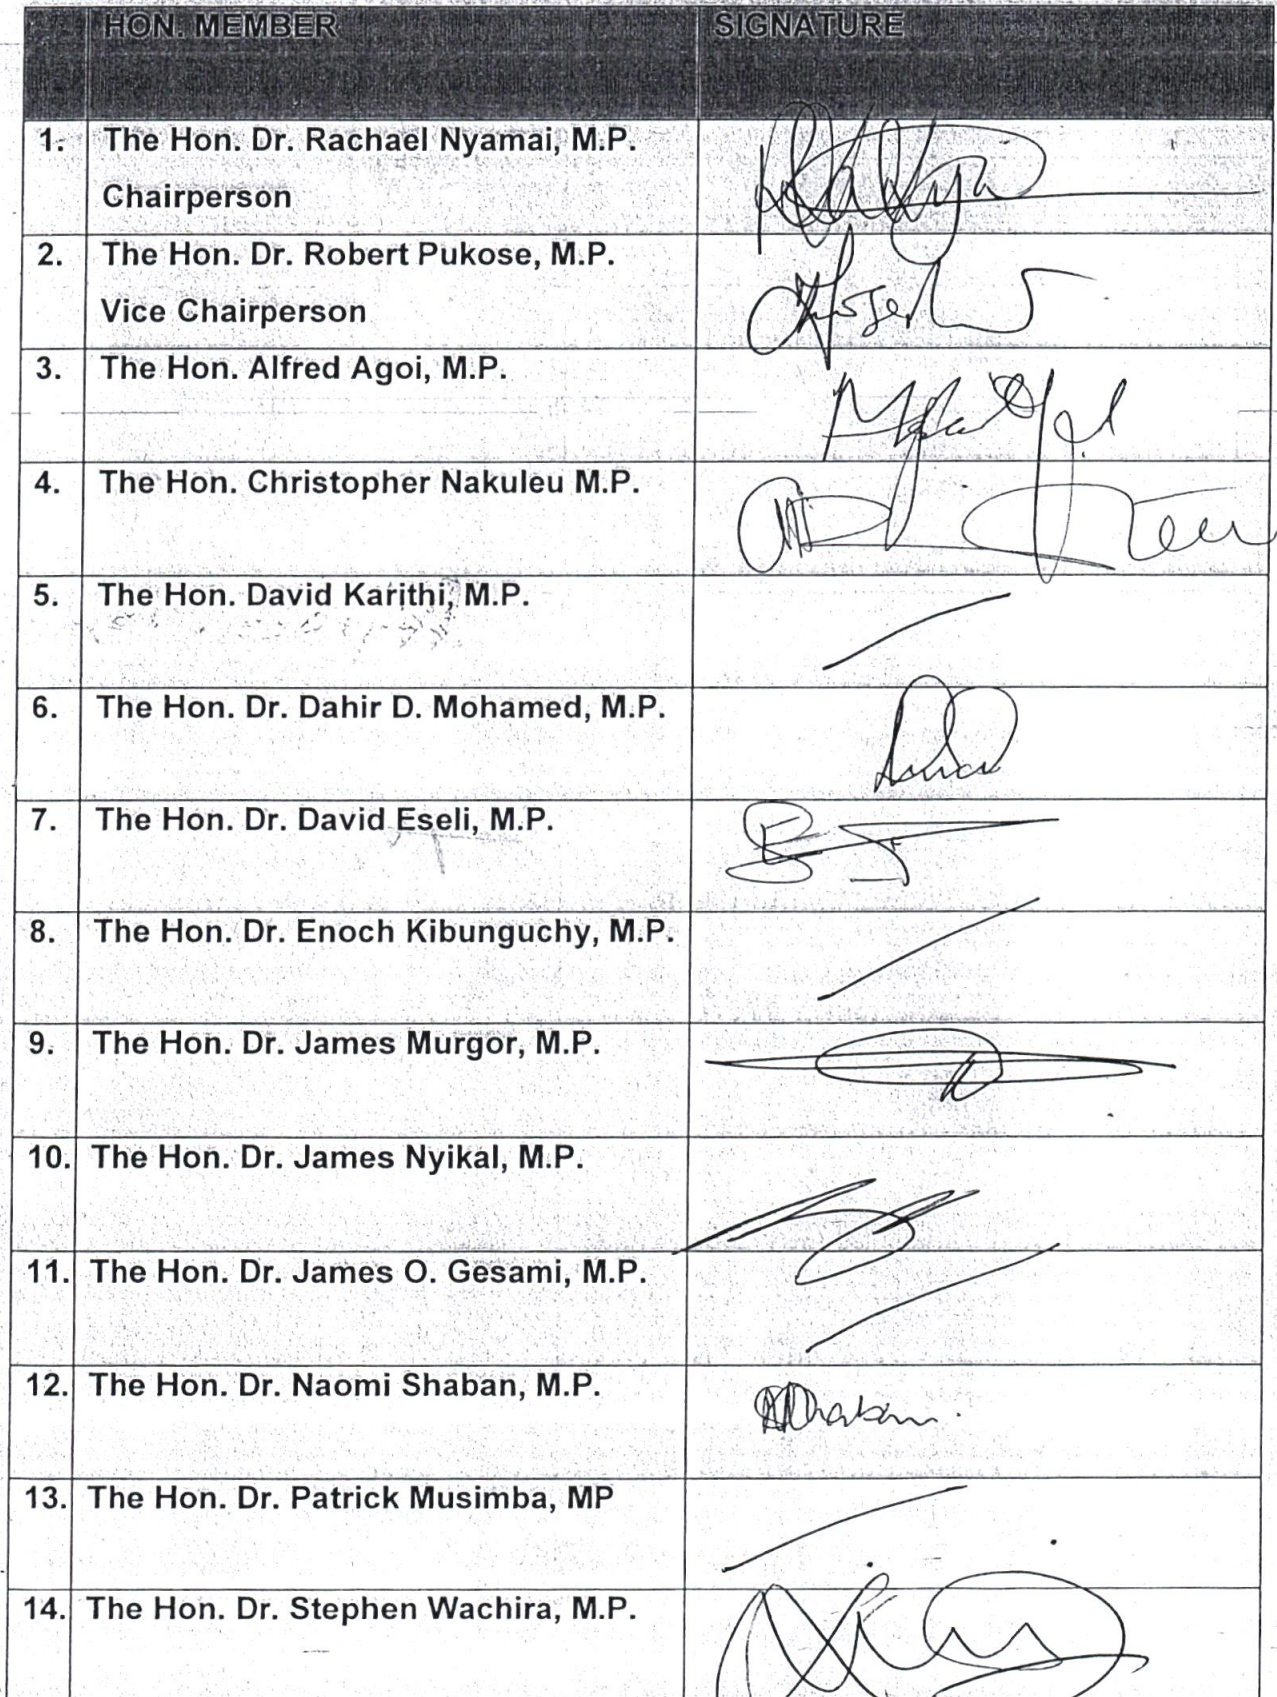 HON. MEMBER SIGNATURE
1. The Hon. Dr. Rachael Nyamai, M.P.
Chairperson
2. The Hon. Dr. Robert Pukose, M.P.
Vice Chairperson
3. The Hon. Alfred Agoi, M.P.
4. The Hon. Christopher Nakuleu M.P.
5. The Hon. David Karithi, M.P.
6. The Hon. Dr. Dahir D. Mohamed, M.P.
7. The Hon. Dr. David Eseli, M.P.
8. The Hon. Dr. Enoch Kibunguchy, M.P.
9. The Hon. Dr. James Murgor, M.P.
10. The Hon. Dr. James Nyikal, M.P.
11. The Hon. Dr. James O. Gesami, M.P.
12. The Hon. Dr. Naomi Shaban, M.P.
13. The Hon. Dr. Patrick Musimba, MP
14. The Hon. Dr. Stephen Wachira, M.P.